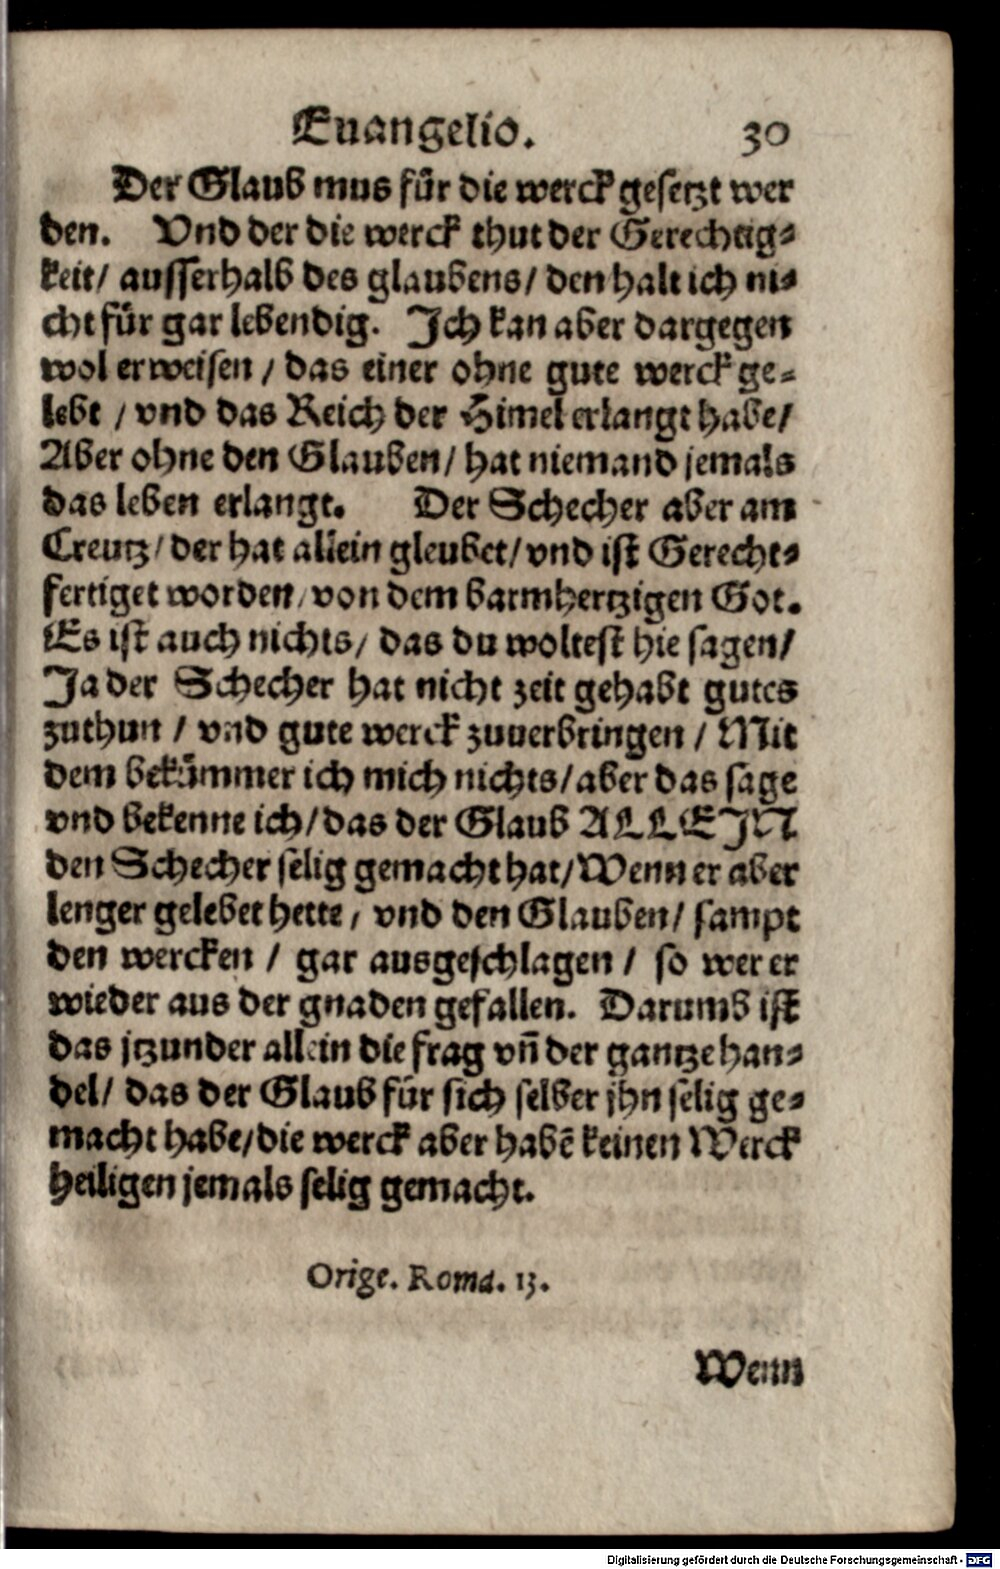 Euangelio. 30
Der Glaub mus für die werck gesetzt wer
den. Vnd der die werck thut der Gerechtig⸗
keit/ ausserhalb des glaubens/ den halt ich ni⸗
cht für gar lebendig. Jch kan aber dargegen
wol erweisen / das einer ohne gute werck ge⸗
lebt / vnd das Reich der Himel erlangt habe/
Aber ohne den Glauben/ hat niemand jemals
das leben erlangt. Der Schecher aber am
Creutz/ der hat allein gleubet/ vnd ist Gerecht⸗
fertiget worden/ von dem barmhertzigen Got.
Es ist auch nichts/ das du woltest hie sagen/
Ja der Schecher hat nicht zeit gehabt gutes
zuthun / vnd gute werck zuuerbringen / Mit
dem bekümmer ich mich nichts/ aber das sage
vnd bekenne ich/ das der Glaub ALLEJN
den Schecher selig gemacht hat/ Wenn er aber
lenger gelebet hette/ vnd den Glauben/ sampt
den wercken / gar ausgeschlagen / so wer er
wieder aus der gnaden gefallen. Darumb ist
das jtzunder allein die frag vñ der gantze han⸗
del/ das der Glaub für sich selber jhn selig ge⸗
macht habe/ die werck aber habē keinen Werck
heiligen jemals selig gemacht.
Orige. Roma. 13.
Wenn
Digitalisierung gefördert durch die Deutsche Forschungsgemeinschaft - DFG